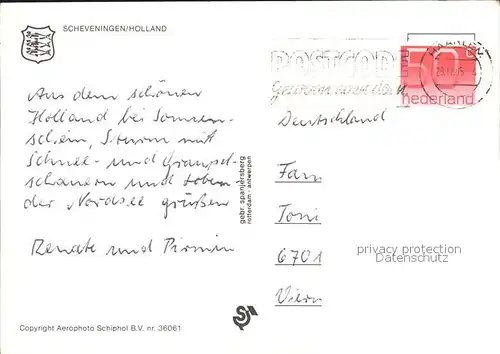 SCHEVENINGEN/HOLLAND
Aus dem schönen
Holland bei Sonnen-
schein, Sturm mit
Schnee- und Graupel-
schauern und toben-
der Nordsee grüßen
Renate und Pirmin
gebr. spanjersberg
rotterdam - antwerpen
Copyright Aerophoto Schiphol B.V. nr. 36061
POSTCODE
50
nederland
Deutschland
Fam
Toni
6701
privacy protection
Datenschutz